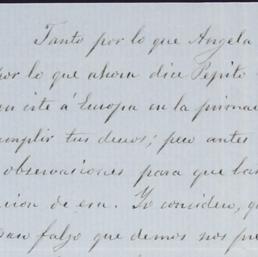 Tanto por lo que Angela
por lo que ahora dice Pepito
en este á Europa en la
cumplir tus deseos; pero antes
observaciones para que
cion de esa. Yo considero, q
paso falzo que demos nos